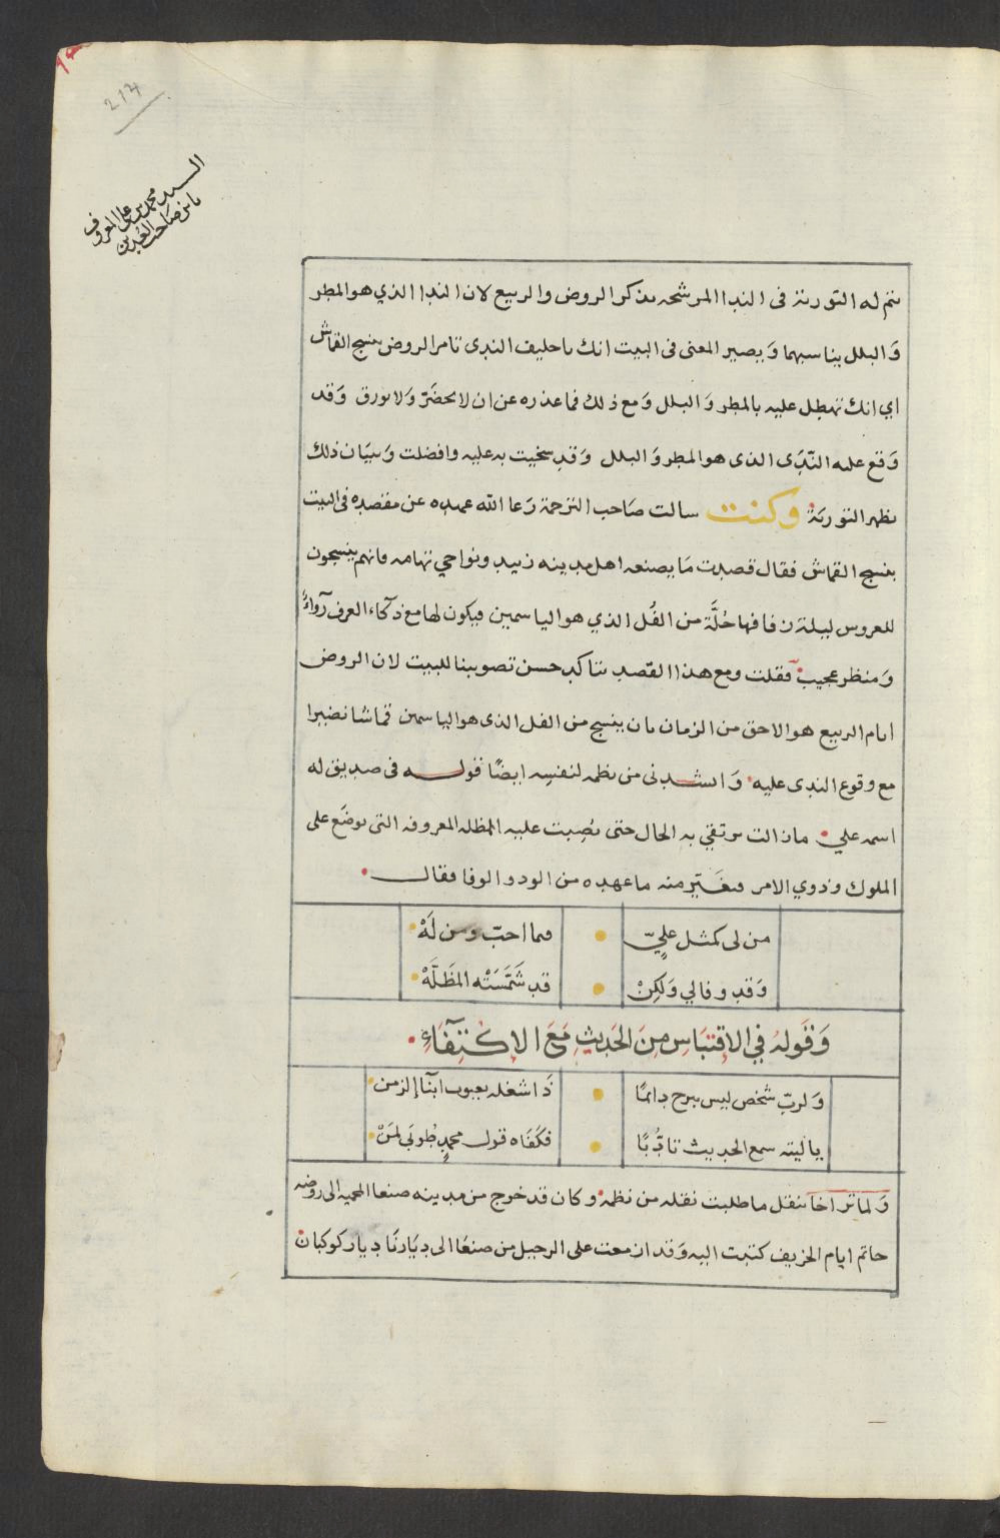 214
السيد محمد بن علي المعروف
بابن صاحب العدين
تتم له التورية فى الندا المرشحه بذكر الروض والربيع لان الندا الذي هو المطر
وَالبلل يناسبهما وَيصير المعنى فى البيت انك ياحليف الندى تامر الروض بنسج القماش
اي انك تهطل عليه بالمطر وَالبلل وَمع ذلك فما عذره عن ان لا يخضَرّ وَلا يورق وَقد
وَقع عليه النّدَى الذى هو المطر وَالبلل وَقد سخيت به عليه وافضلت وَببيَان ذلك
يظهر التورية وكنت سالت صَاحب الترجمة رَعا الله عهده عن مقصده فى البيت
بنسج القماش فقال قصدت مَا يصنعه اهل مدينه زبيد ونواحي تهامه فانهم ينسجون
للعروس ليلة زفافها حُلَّة من الفُل الذي هو الياسمين فيكون لها مع ذكاء العرف رآواءً
وَمنظر عجيب فقلت ومع هذا القصد يتاكد حسن تصويبنا للبيت لان الروض
ايام الربيع هو الاحق من الزمان بان ينسج من الفل الذى هو الياسمين قماشا نضيرا
مع وقوع الندى عليه وَانشدنى من نظمه لنفسِه ايضًا قوله فى صديق له
اسمه علي مازالت ترتقي به الحال حتى نُصِبت عليه المظله المعروفه التى توضَع على
الملوك وذوي الامر فتغَيّر منه ما عهده من الود والوفا فقال
من لى كمثل عليٍّ فما احبّ ومن لَهْ
وَقد وفالي وَلكِنْ قد شَمَّسَتْه المظَلَّهْ
وَقَولهُ فِي الاِقتبَاسِ مِنَ الحَديثِ مَعَ الاِكتِفَآءِ
وَلربّ شخص ليس يبرح دائمًا ذَا شغله بعيوب ابنَآء الزمن
ياليته سمع الحديث تادُّبًا فكفَاه قول محمدٍ طُوبَى لمَنْ
وَلما تراخا بنقل ما طلبت نقله من نظمه وكان قد خرج من مدينه صنعا المحميه الى روضه
حاتم ايام الخريف كتبت اليه وَقد ازمعت على الرحيل من صنعَا الى ديَارنَا ديار كوكبان